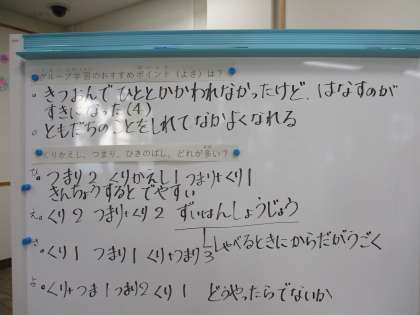 グループ学習のおすすめポイント（よさ）は？
。きつおんでひととかかわれなかったけど、はなすのが
すきになった（4）
。ともだちのことをしれてなかよくなれる
くりかえし、つまり、ひきのばし、どれが多い？
つまり2 くりかえし1 つまり+くり1
きんちょうするとでやすい
くり2 つまり+くり2 ずいはんしょうじょう
しゃべるときにからだがうごく
くり1 つまり1 くり+つまり3
くり+つま1 つまり2 くり1 どうやったらでないか